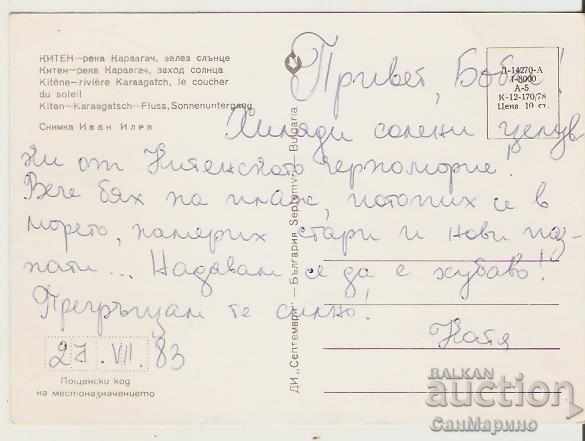 КИТЕН—река Караагач, залез слънце
Китен—река Караагач, заход солнца
Kitène—rivière Karaagatch, le coucher
du soleil
Kiten—Karaagatsch—Fluss, Sonnenuntergang
Снимка Иван Илев
Д-14270-А
А-5
К-12-170/78
Цена 10 ст.
Привет, Боби!
Хиляди солени целув
ки от Китенското черноморие!
Вече бях на плаж, потопих се в
морето, намерих стари и нови поз-
нати... Надявам се да е хубаво!
Прегръщам те силно!
Катя
27. VII. 83
Пощенски код
на местоназначението
ДИ „Септември“ — България Septemvri — Bulgaria
BALKAN
auction
СанМарино